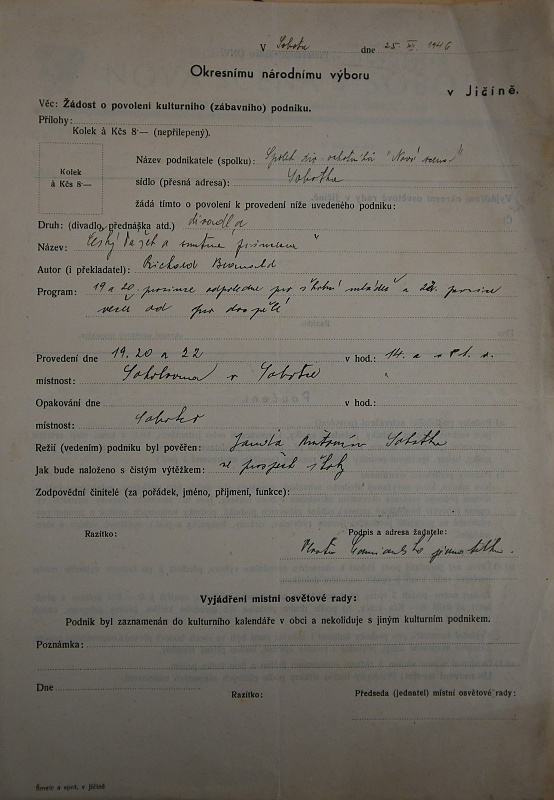 V Sobotce dne 25. XI. 1946
Okresnímu národnímu výboru
v Jičíně.
Věc: Žádost o povolení kulturního (zábavního) podniku.
Přílohy:
Kolek à Kčs 8·— (nepřilepený).
Kolek
à Kčs 8·—
Název podnikatele (spolku): Spolek div. ochotníků "Nová scena"
sídlo (přesná adresa): Sobotka
žádá tímto o povolení k provedení níže uvedeného podniku:
Druh: (divadlo, přednáška atd.) divadlo
Název: Český a smutná princezna
Autor (i překladatel): Richard
Program: 19 a 20. prosince odpoledne pro školní mládež a 22. prosince
večer od pro dospělé
Provedení dne 19. 20 a 22 v hod.: 14. a
místnost: Sokolovna v Sobotce
Opakování dne v hod.:
místnost: Sobotka
Režií (vedením) podniku byl pověřen: Janda Antonín Sobotka
Jak bude naloženo s čistým výtěžkem: ve prospěch školy
Zodpovědní činitelé (za pořádek, jméno, příjmení, funkce):
Razítko: Podpis a adresa žadatele:
Vyjádření místní osvětové rady:
Podnik byl zaznamenán do kulturního kalendáře v obci a nekoliduje s jiným kulturním podnikem.
Poznámka:
Dne
Razítko:
Předseda (jednatel) místní osvětové rady:
Šmejc a spol. v Jičíně